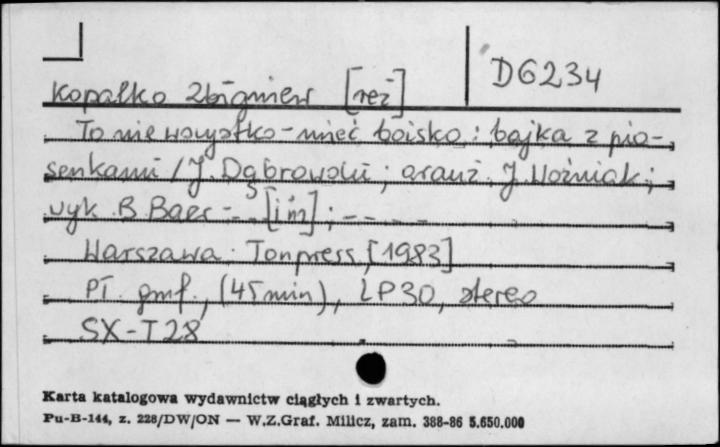 D6234
Kopalko Zbigniew [reż]
To nie wszystko - mieć boisko : bajka z pio-
senkami / J. Dąbrowski ; aranż. J. Woźniak ;
wyk. B. Baer - - [i in] ; - - - -
Warszawa : Tonpress, [1983]
Pł. gmf., (45 min), LP30, stereo
SX-T28
Karta katalogowa wydawnictw ciągłych i zwartych.
Pu-B-144, z. 228/DW/ON — W.Z.Graf. Milicz, zam. 388-86 5.650.000